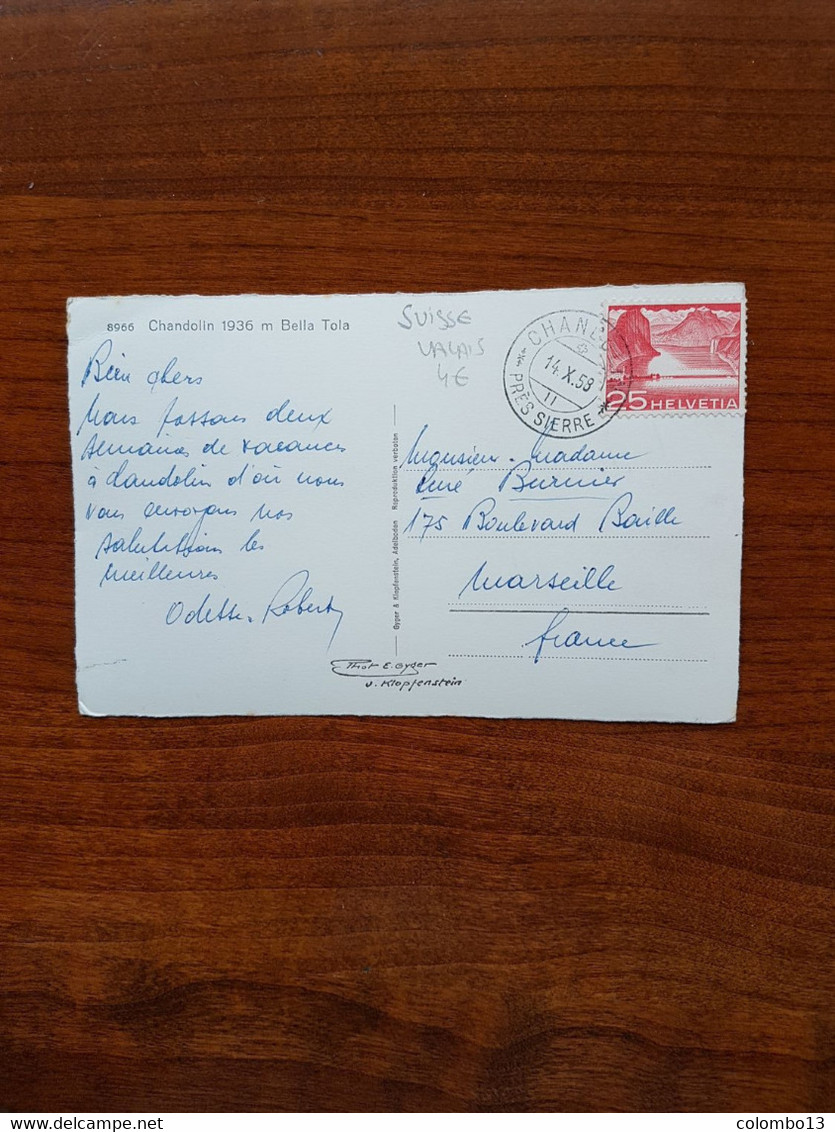 8966 Chandolin 1936 m Bella Tola
SUISSE
VALAIS
4€
CHANDOLIN
14.X.58
11
PRÈS SIERRE
25 HELVETIA
Bien chers
Nous passons deux
semaines de vacances
à Chandolin d'où nous
vous envoyons nos
salutations les
meilleures
Odette. Robert
Gyger & Klopfenstein, Adelboden Reproduktion verboten
Monsieur. Madame
René Burnier
175 Boulevard Baille
Marseille
France
Phot E. Gyger
u. Klopfenstein
delcampe.net
colombo13